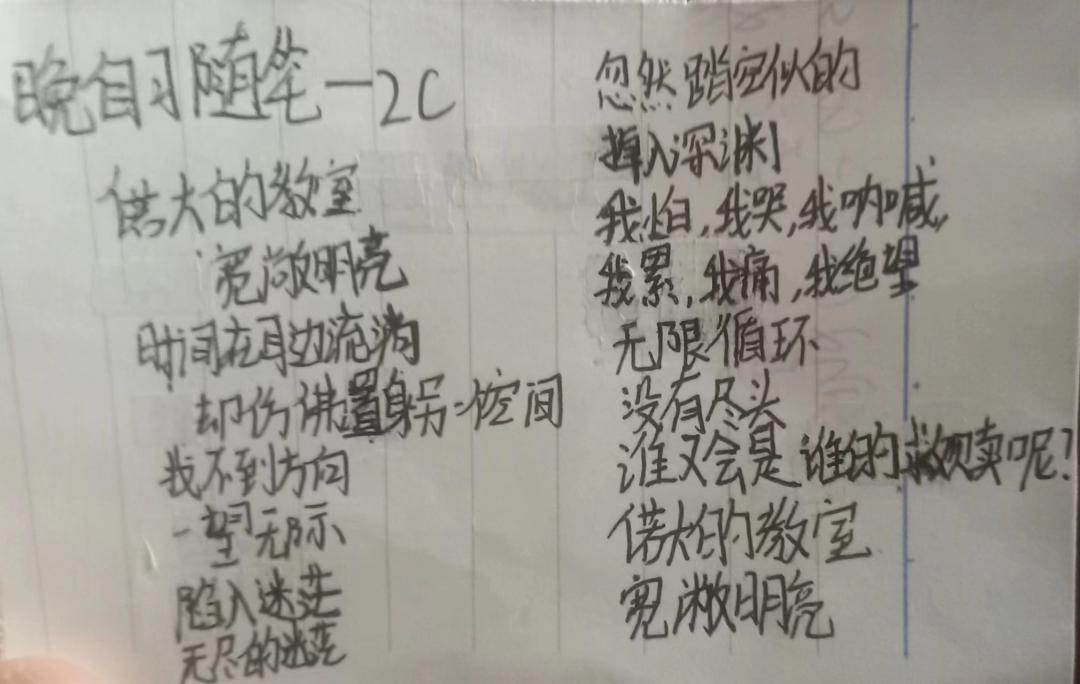 晚自习随笔一2C
偌大的教室
宽敞明亮
时间在耳边流淌
却仿佛置身另一空间
找不到方向
一望无际
陷入迷茫
无尽的迷茫
忽然踏空似的
掉入深渊
我怕,我哭,我呐喊,
我累,我痛,我绝望
无限循环
没有尽头
谁又会是谁的救赎呢?
偌大的教室
宽敞明亮